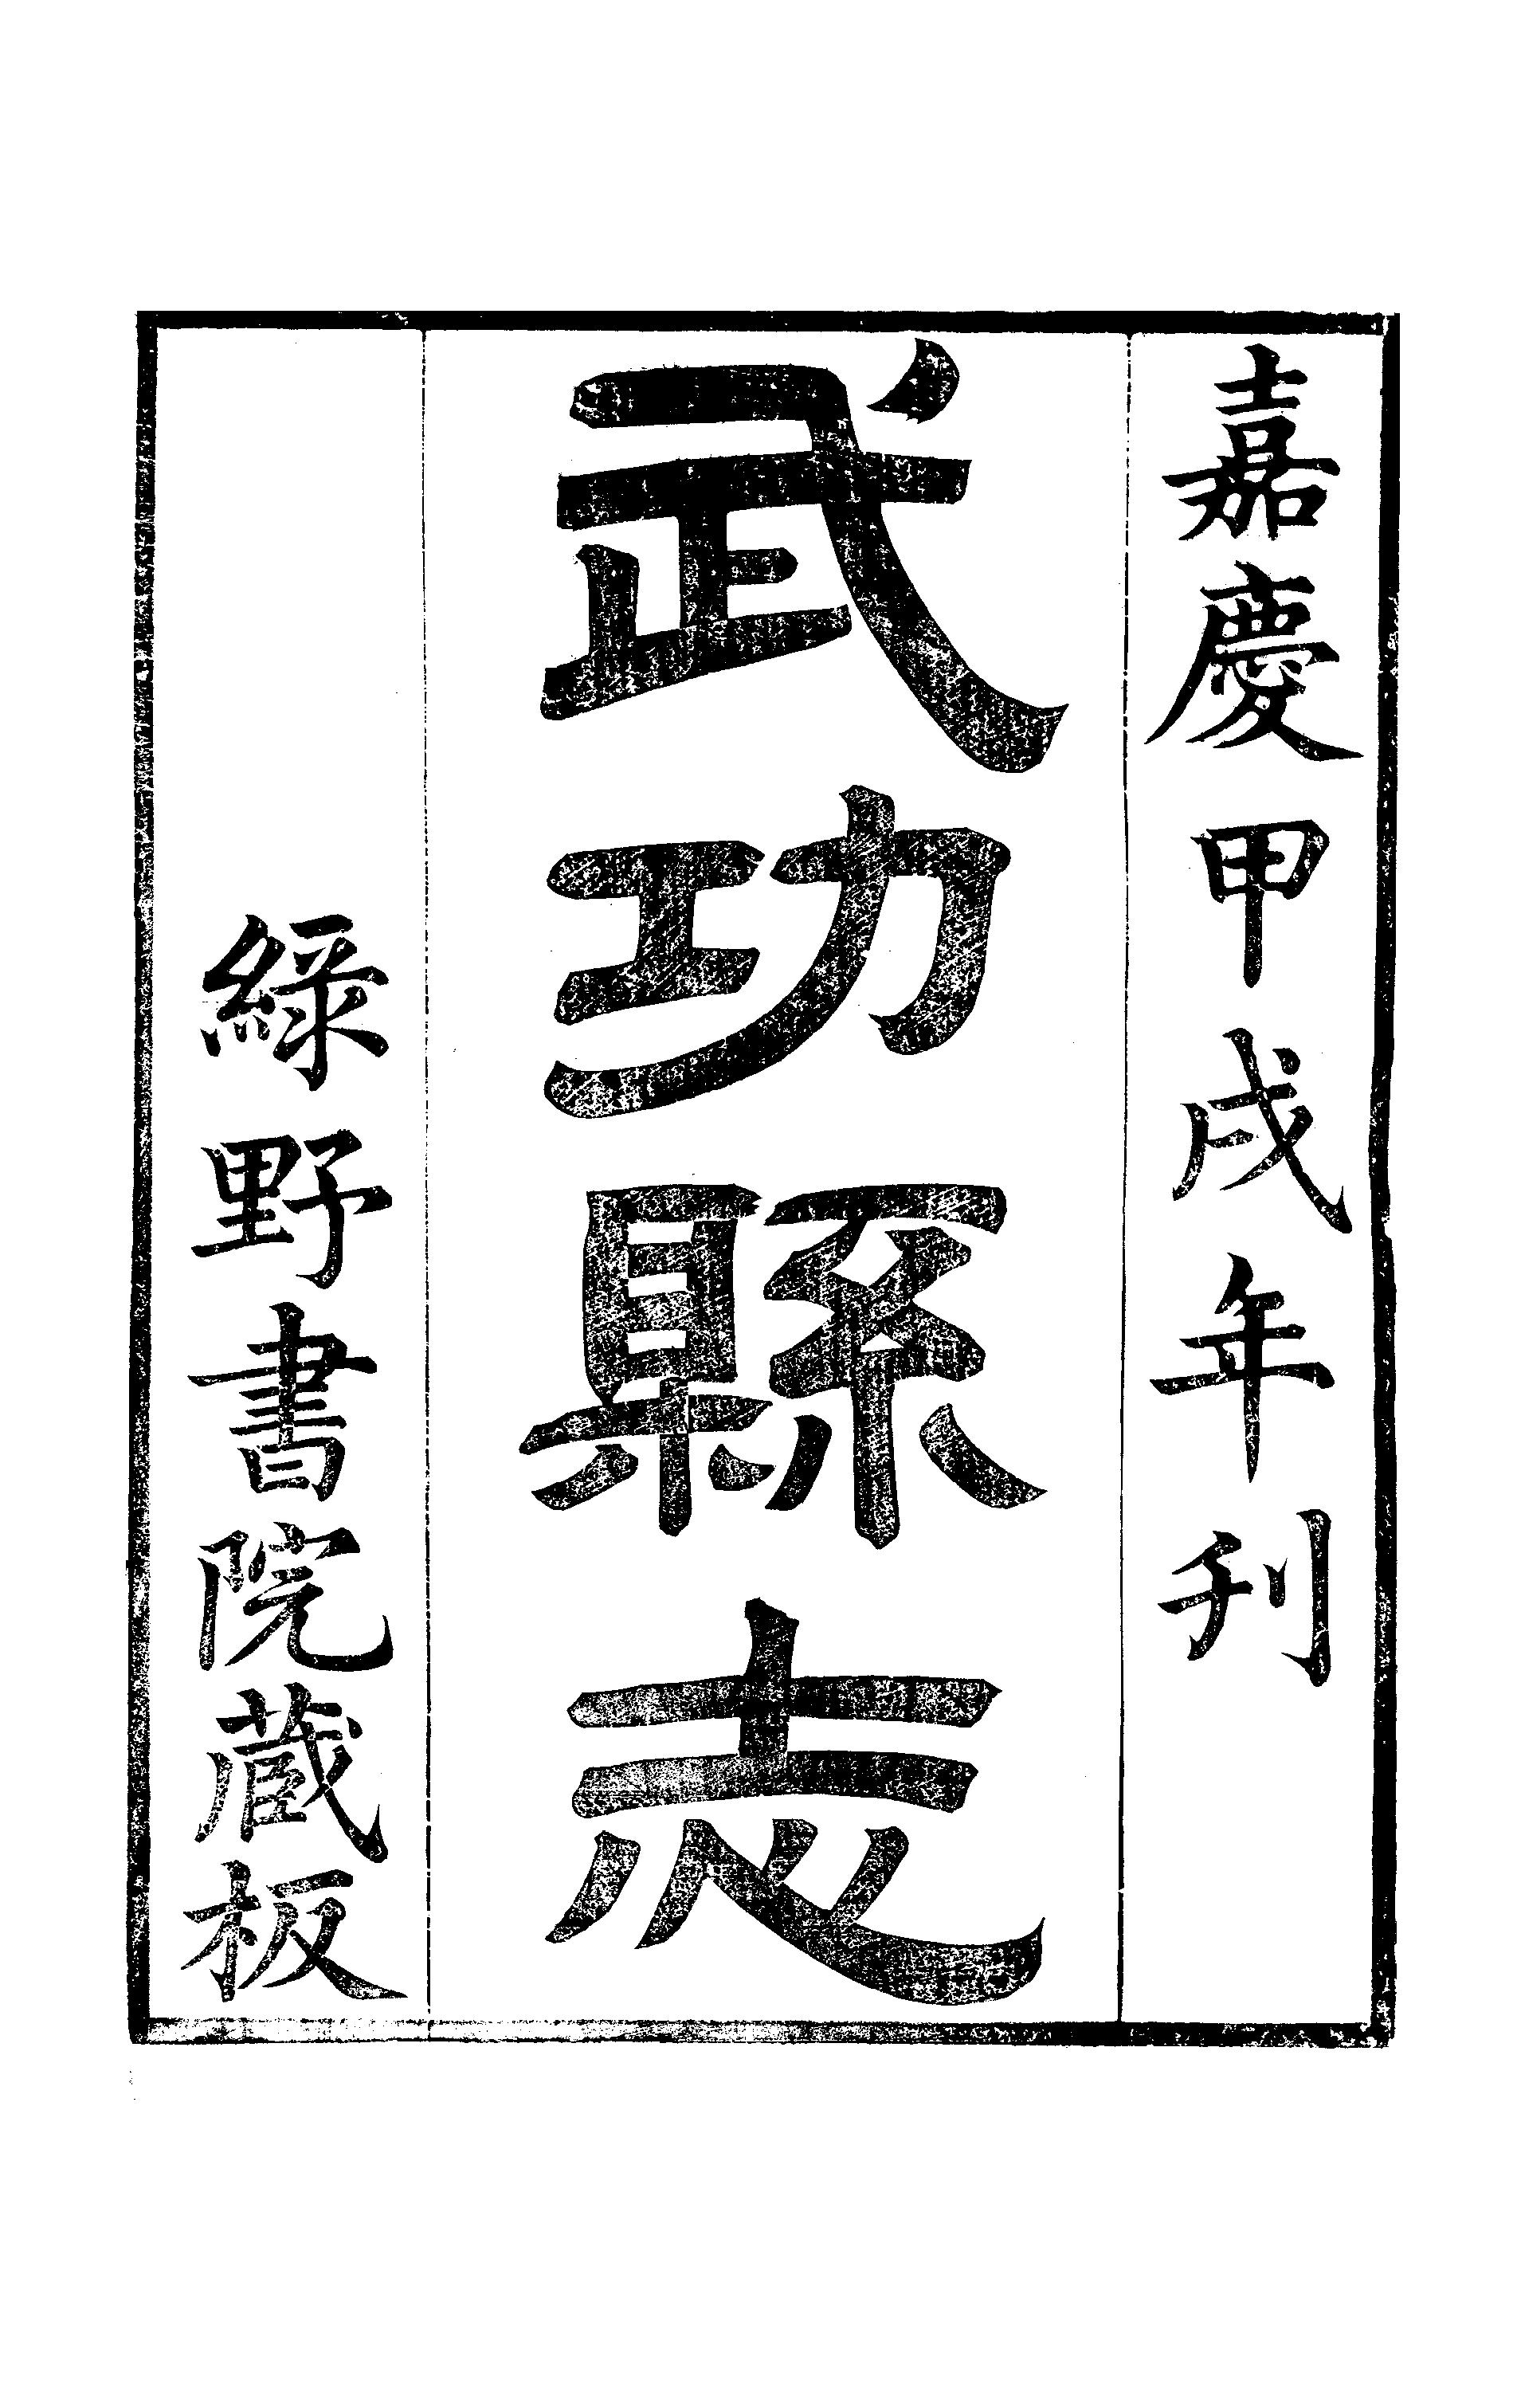 嘉慶甲戌年刋
武功縣志
綠野書院藏板